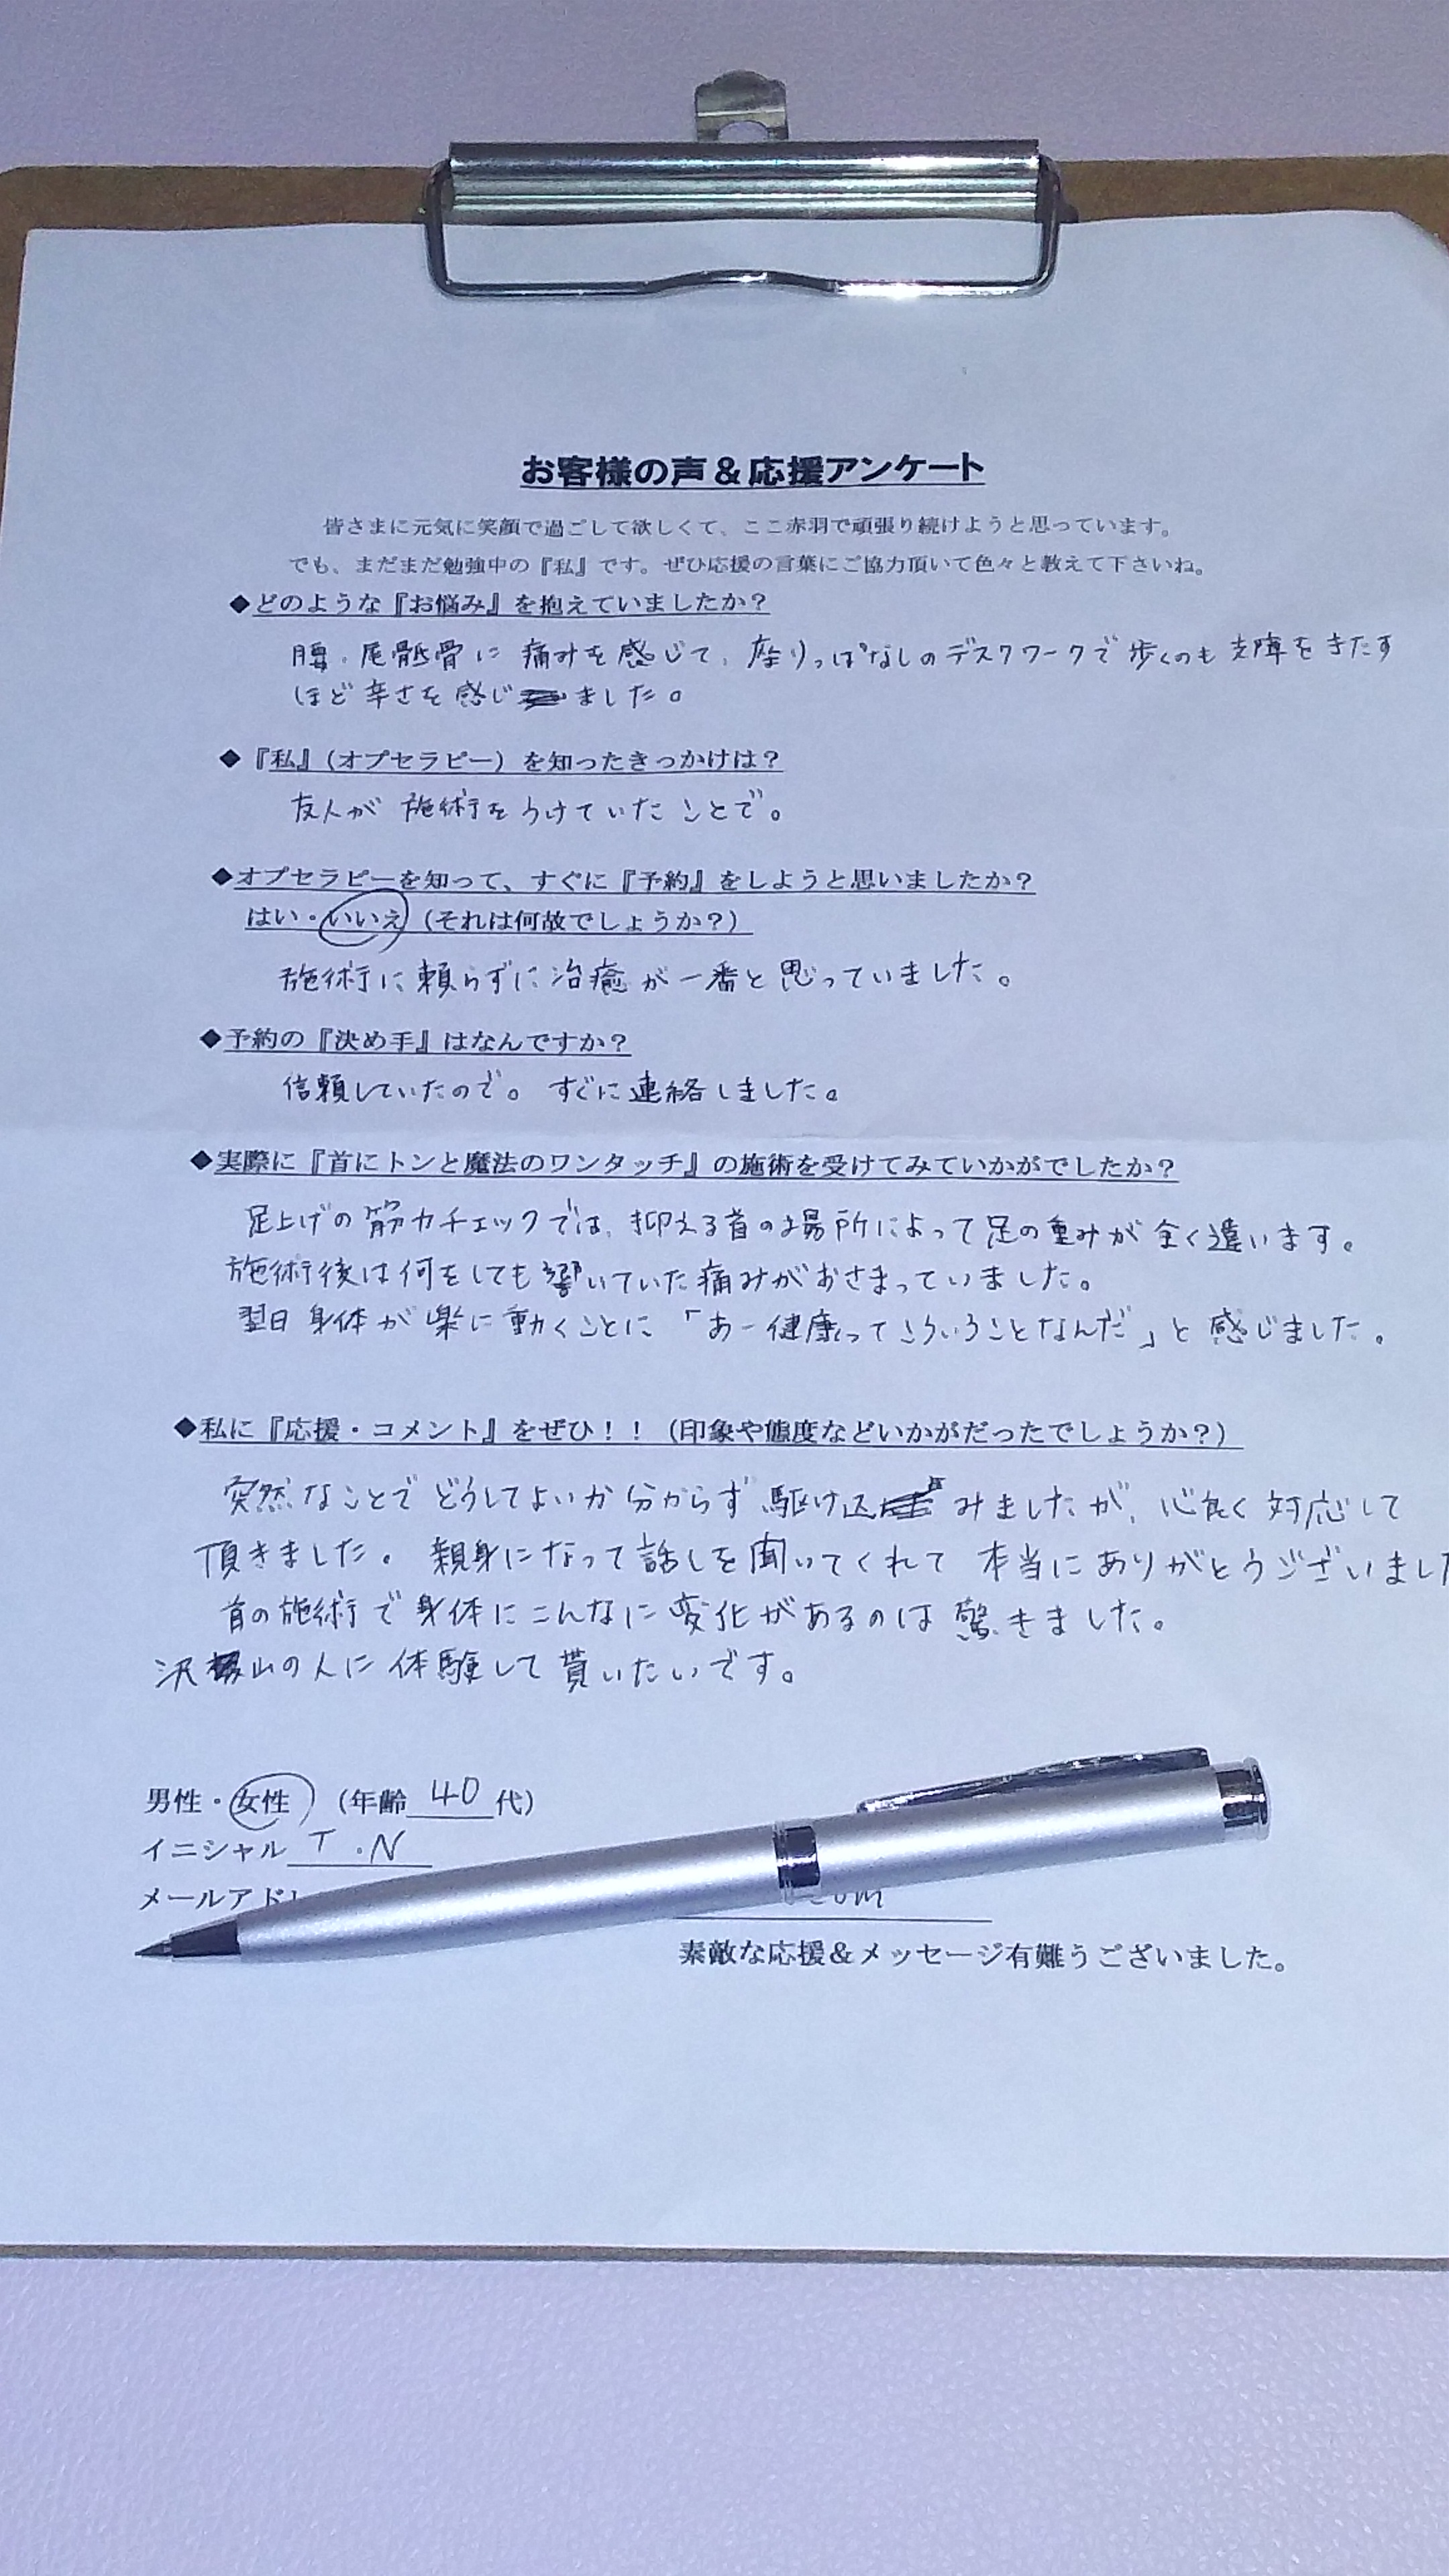 お客様の声＆応援アンケート
皆さまに元気に笑顔で過ごして欲しくて、ここ赤羽で頑張り続けようと思っています。
でも、まだまだ勉強中の『私』です。ぜひ応援の言葉にご協力頂いて色々と教えて下さいね。
◆どのような『お悩み』を抱えていましたか？
腰、尾骶骨に痛みを感じて、座りっぱなしのデスクワークで歩くのも支障をきたす
ほど辛さを感じました。
◆『私』（オプセラピー）を知ったきっかけは？
友人が施術をうけていたことで。
◆オプセラピーを知って、すぐに『予約』をしようと思いましたか？
はい・いいえ（それは何故でしょうか？）
施術に頼らずに治癒が一番と思っていました。
◆予約の『決め手』はなんですか？
信頼していたので。すぐに連絡しました。
◆実際に『首にトンと魔法のワンタッチ』の施術を受けてみていかがでしたか？
足上げの筋力チェックでは、抑える首の場所によって足の重みが全く違います。
施術後は何をしても響いていた痛みがおさまっていました。
翌日身体が楽に動くことに「あー健康ってこういうことなんだ」と感じました。
◆私に『応援・コメント』をぜひ！！（印象や態度などいかがだったでしょうか？）
突然なことでどうしてよいか分からず駆け込みましたが、心良く対応して
頂きました。親身になって話しを聞いてくれて本当にありがとうございました
首の施術で身体にこんなに変化があるのは驚きました。
沢山の人に体験して貰いたいです。
男性・女性（年齢40代）
イニシャル T.N
メールアド
com
素敵な応援＆メッセージ有難うございました。